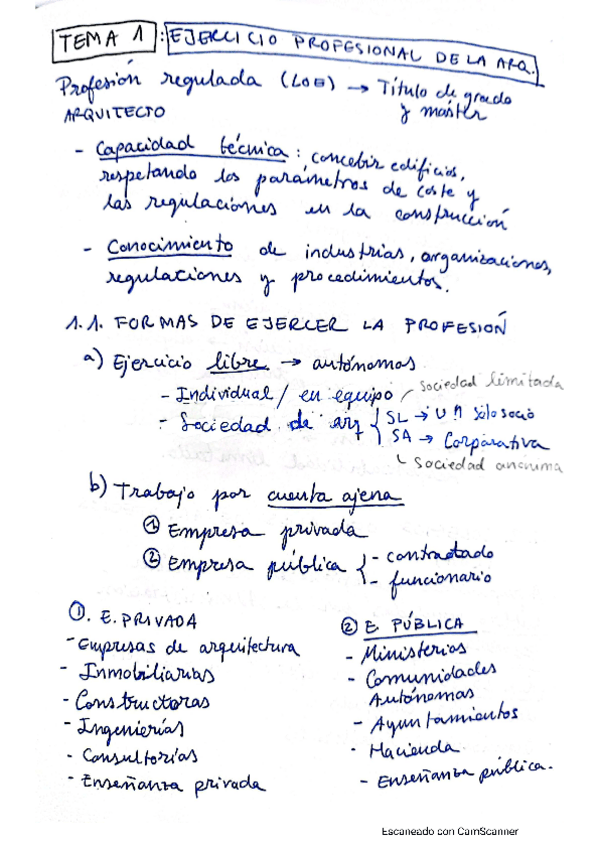 TEMA 1 : EJERCICIO PROFESIONAL DE LA ARQ.
Profesión regulada (LOE) → Título de grado
y master
ARQUITECTO
- Capacidad técnica: concebir edificios,
respetando los parámetros de coste y
las regulaciones en la construcción
- Conocimiento de industrias, organizaciones,
regulaciones y procedimientos.
1.1. FORMAS DE EJERCER LA PROFESIÓN
a) Ejercicio libre → autónomos
- Individual / en equipo
sociedad limitada
- Sociedad de arq { SL → Un sólo socio
SA → Corporativa
sociedad anónima
b) Trabajo por cuenta ajena
① Empresa privada
② Empresa pública { - contractado
- funcionario
①. E. PRIVADA
- Empresas de arquitectura
- Inmobiliarias
- Constructoras
- Ingenierías
- Consultorías
- Enseñanza privada
② E PÚBLICA
- Ministerios
- Comunidades
Autónomas
- Ayuntamientos
- Hacienda
- Enseñanza pública.
Escaneado con CamScanner